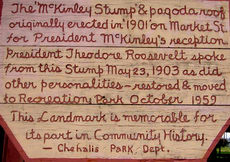 The "McKinley Stump" & pagoda roof
originally erected in 1901 on Market St.
for President McKinley's reception
President Theodore Roosevelt spoke
from this Stump May 23, 1903 as did
other personalities - restored & moved
to Recreation Park October 1959
This Landmark is memorable for
its part in Community History.
- Chehalis Park Dept.